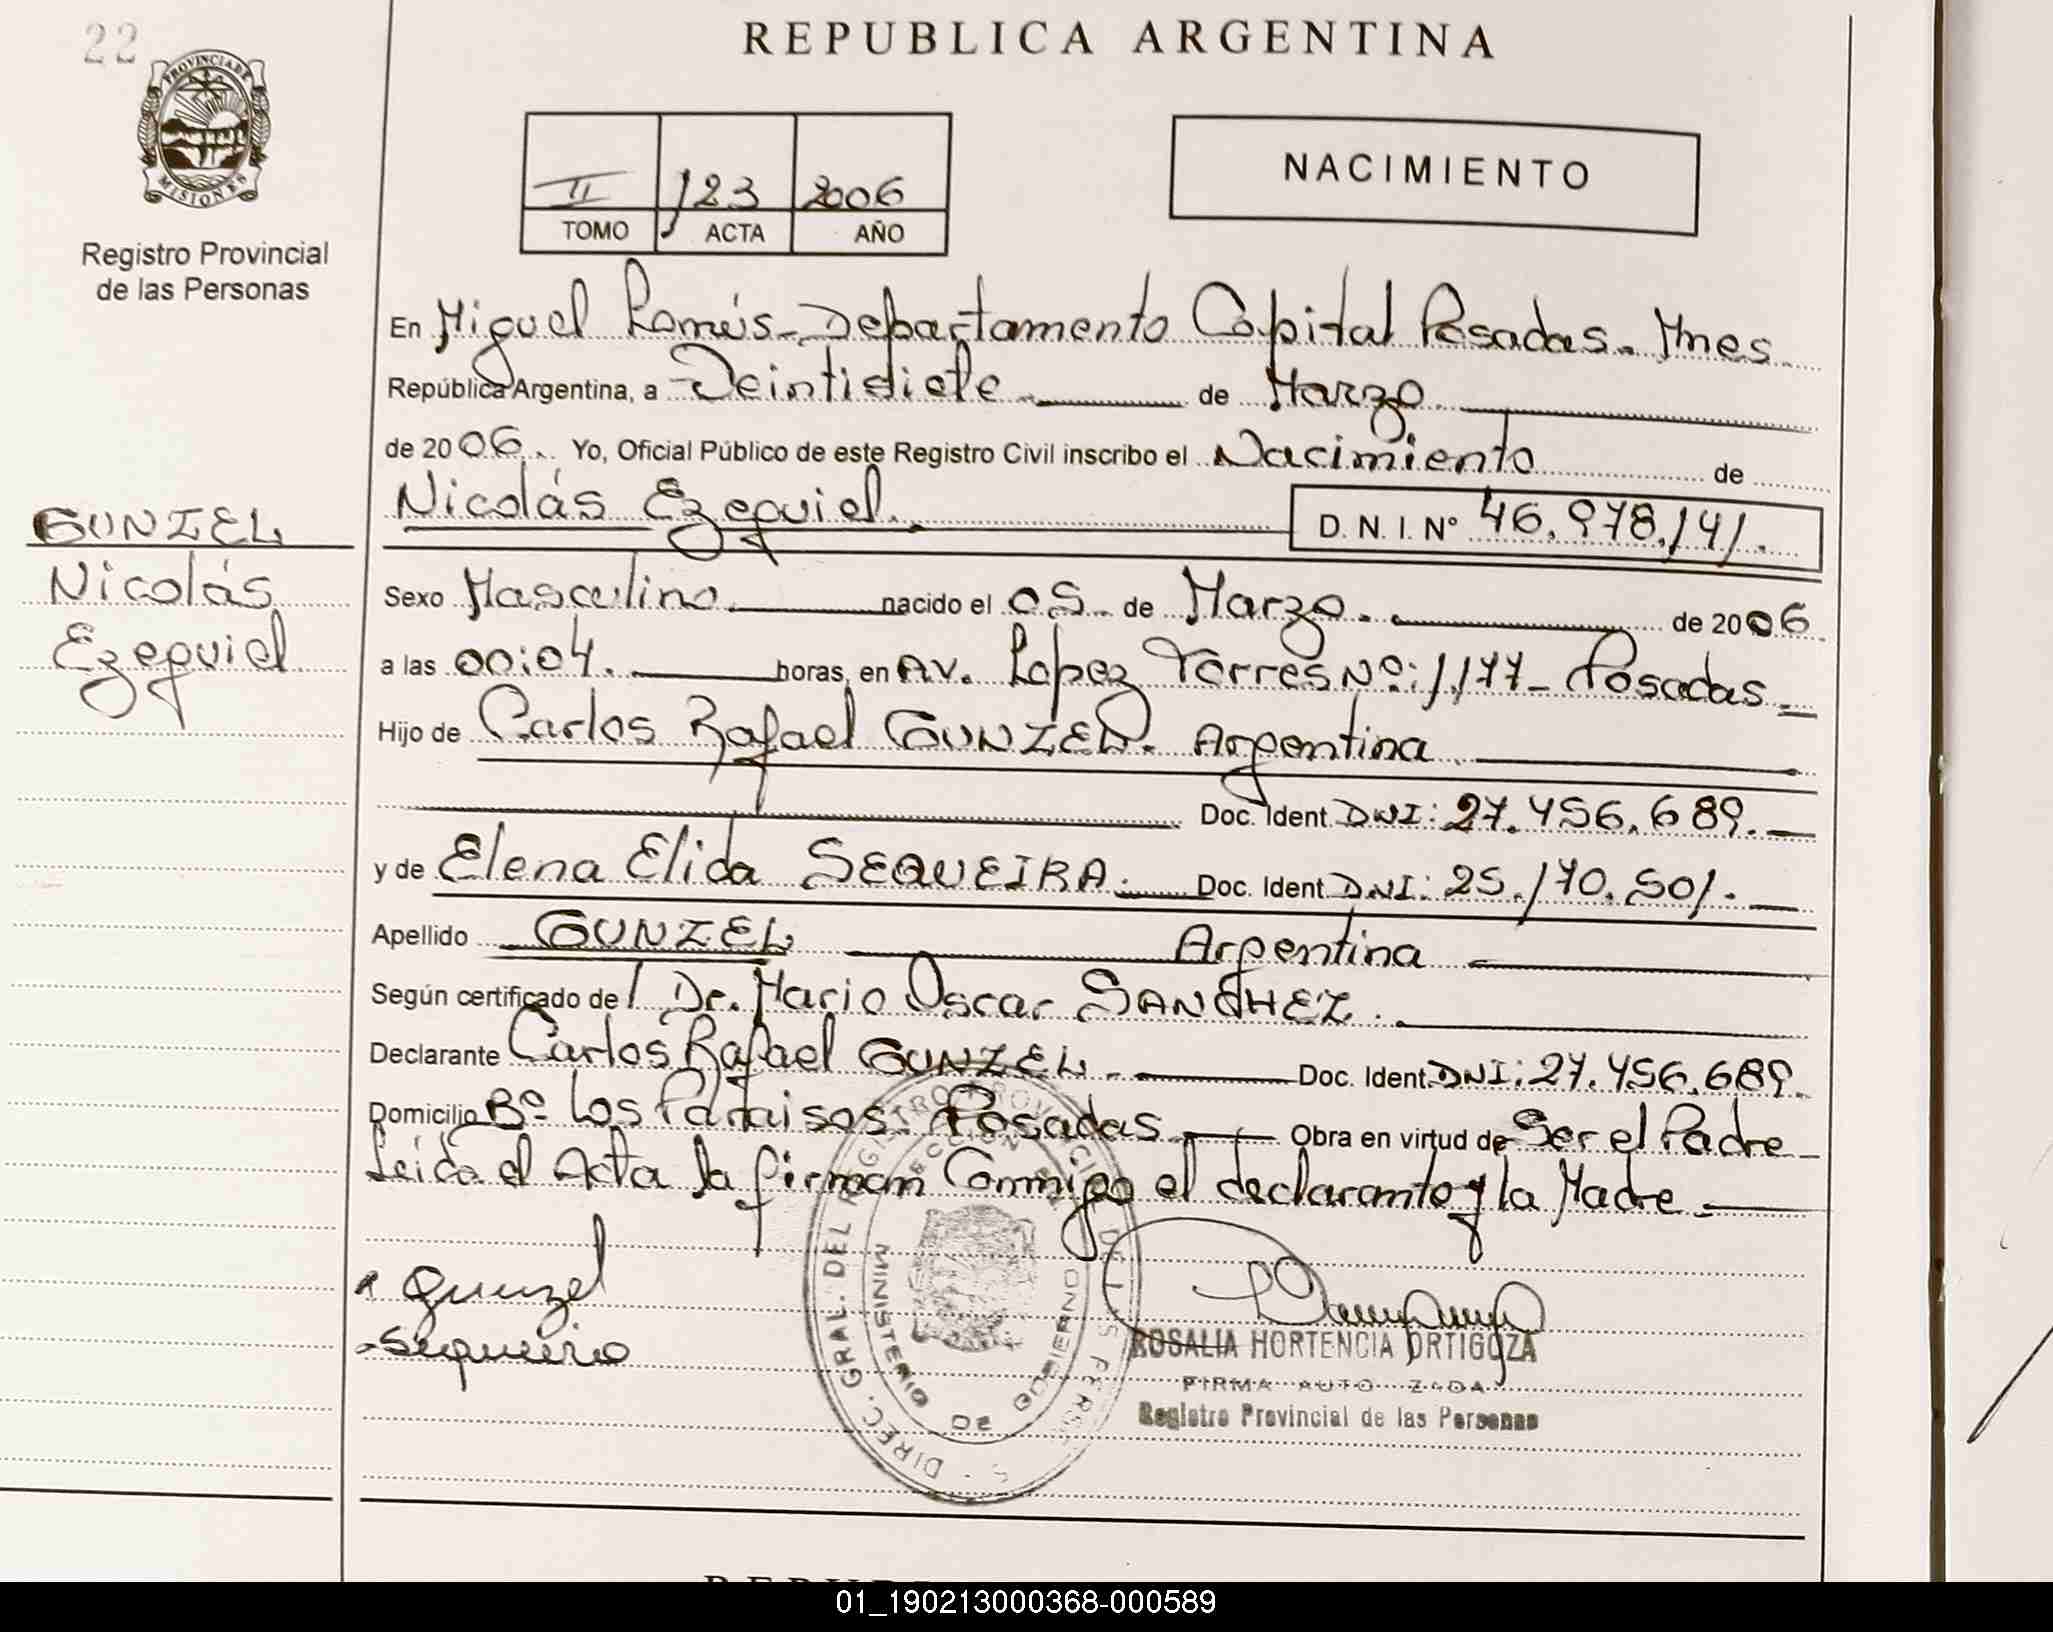 22
REPUBLICA ARGENTINA
PROVINCIA DE
MISIONES
Registro Provincial
de las Personas
II 123 2006
TOMO ACTA AÑO
NACIMIENTO
En Miguel Lanús - Departamento Capital Posadas - Mnes
República Argentina, a Veintisiete de Marzo
de 2006. Yo, Oficial Público de este Registro Civil inscribo el Nacimiento de
Nicolás Ezequiel. D. N. I. Nº 46.978.141.
GUNZEL
Nicolás
Ezequiel
Sexo Masculino nacido el 05 de Marzo. de 2006
a las 00:04. horas, en Av. Lopez Torres Nº: 1.177 - Posadas -
Hijo de Carlos Rafael GUNZEL. Argentina
Doc. Ident. DNI: 27.456.689.
y de Elena Elida SEQUEIRA. Doc. Ident. DNI: 25.170.501.
Apellido GUNZEL Argentina
Según certificado del Dr. Mario Oscar SANCHEZ.
Declarante Carlos Rafael GUNZEL. Doc. Ident. DNI: 27.456.689.
Domicilio Bº Los Paraisos - Posadas Obra en virtud de Ser el Padre
Leida el Acta la firman Conmigo el declarante y la Madre
Gunzel
Sequeira
DIREC. GRAL. DEL REGISTRO PROVINCIAL DE LAS PERSONAS
MINISTERIO DE GOBIERNO
ROSALIA HORTENCIA ORTIGOZA
FIRMA AUTORIZADA
Registro Provincial de las Personas
01_190213000368-000589